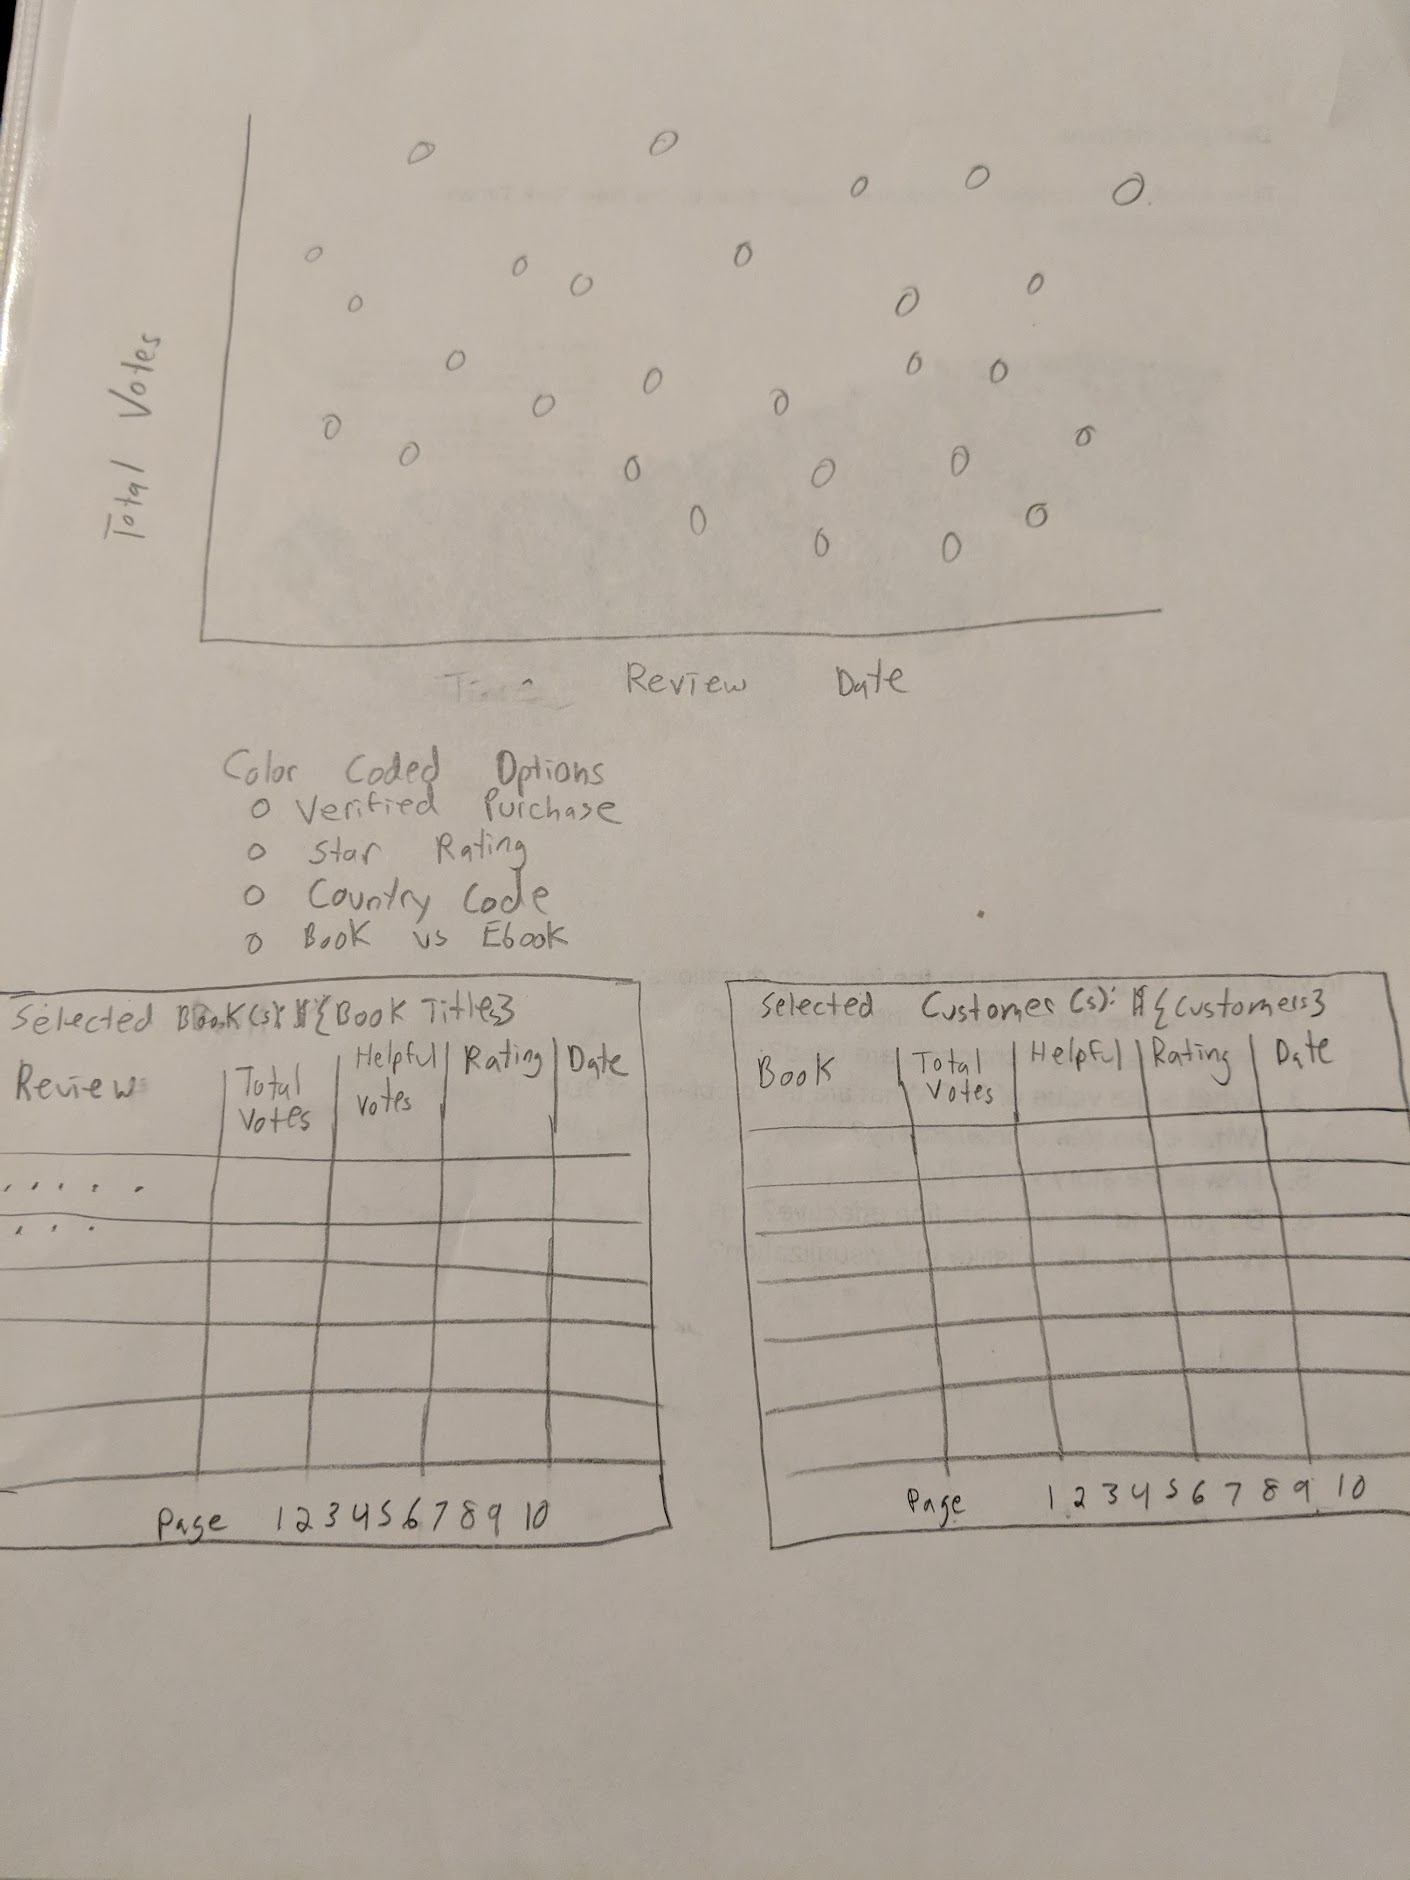 Total Votes
Review Date
Color Coded Options
Verified Purchase
Star Rating
Country Code
Book vs Ebook
Selected Book(s): {Book Titles}
Review
Total Votes
Helpful votes
Rating
Date
Page 1 2 3 4 5 6 7 8 9 10
Selected Customer(s): {Customers}
Book
Total Votes
Helpful
Rating
Date
Page 1 2 3 4 5 6 7 8 9 10